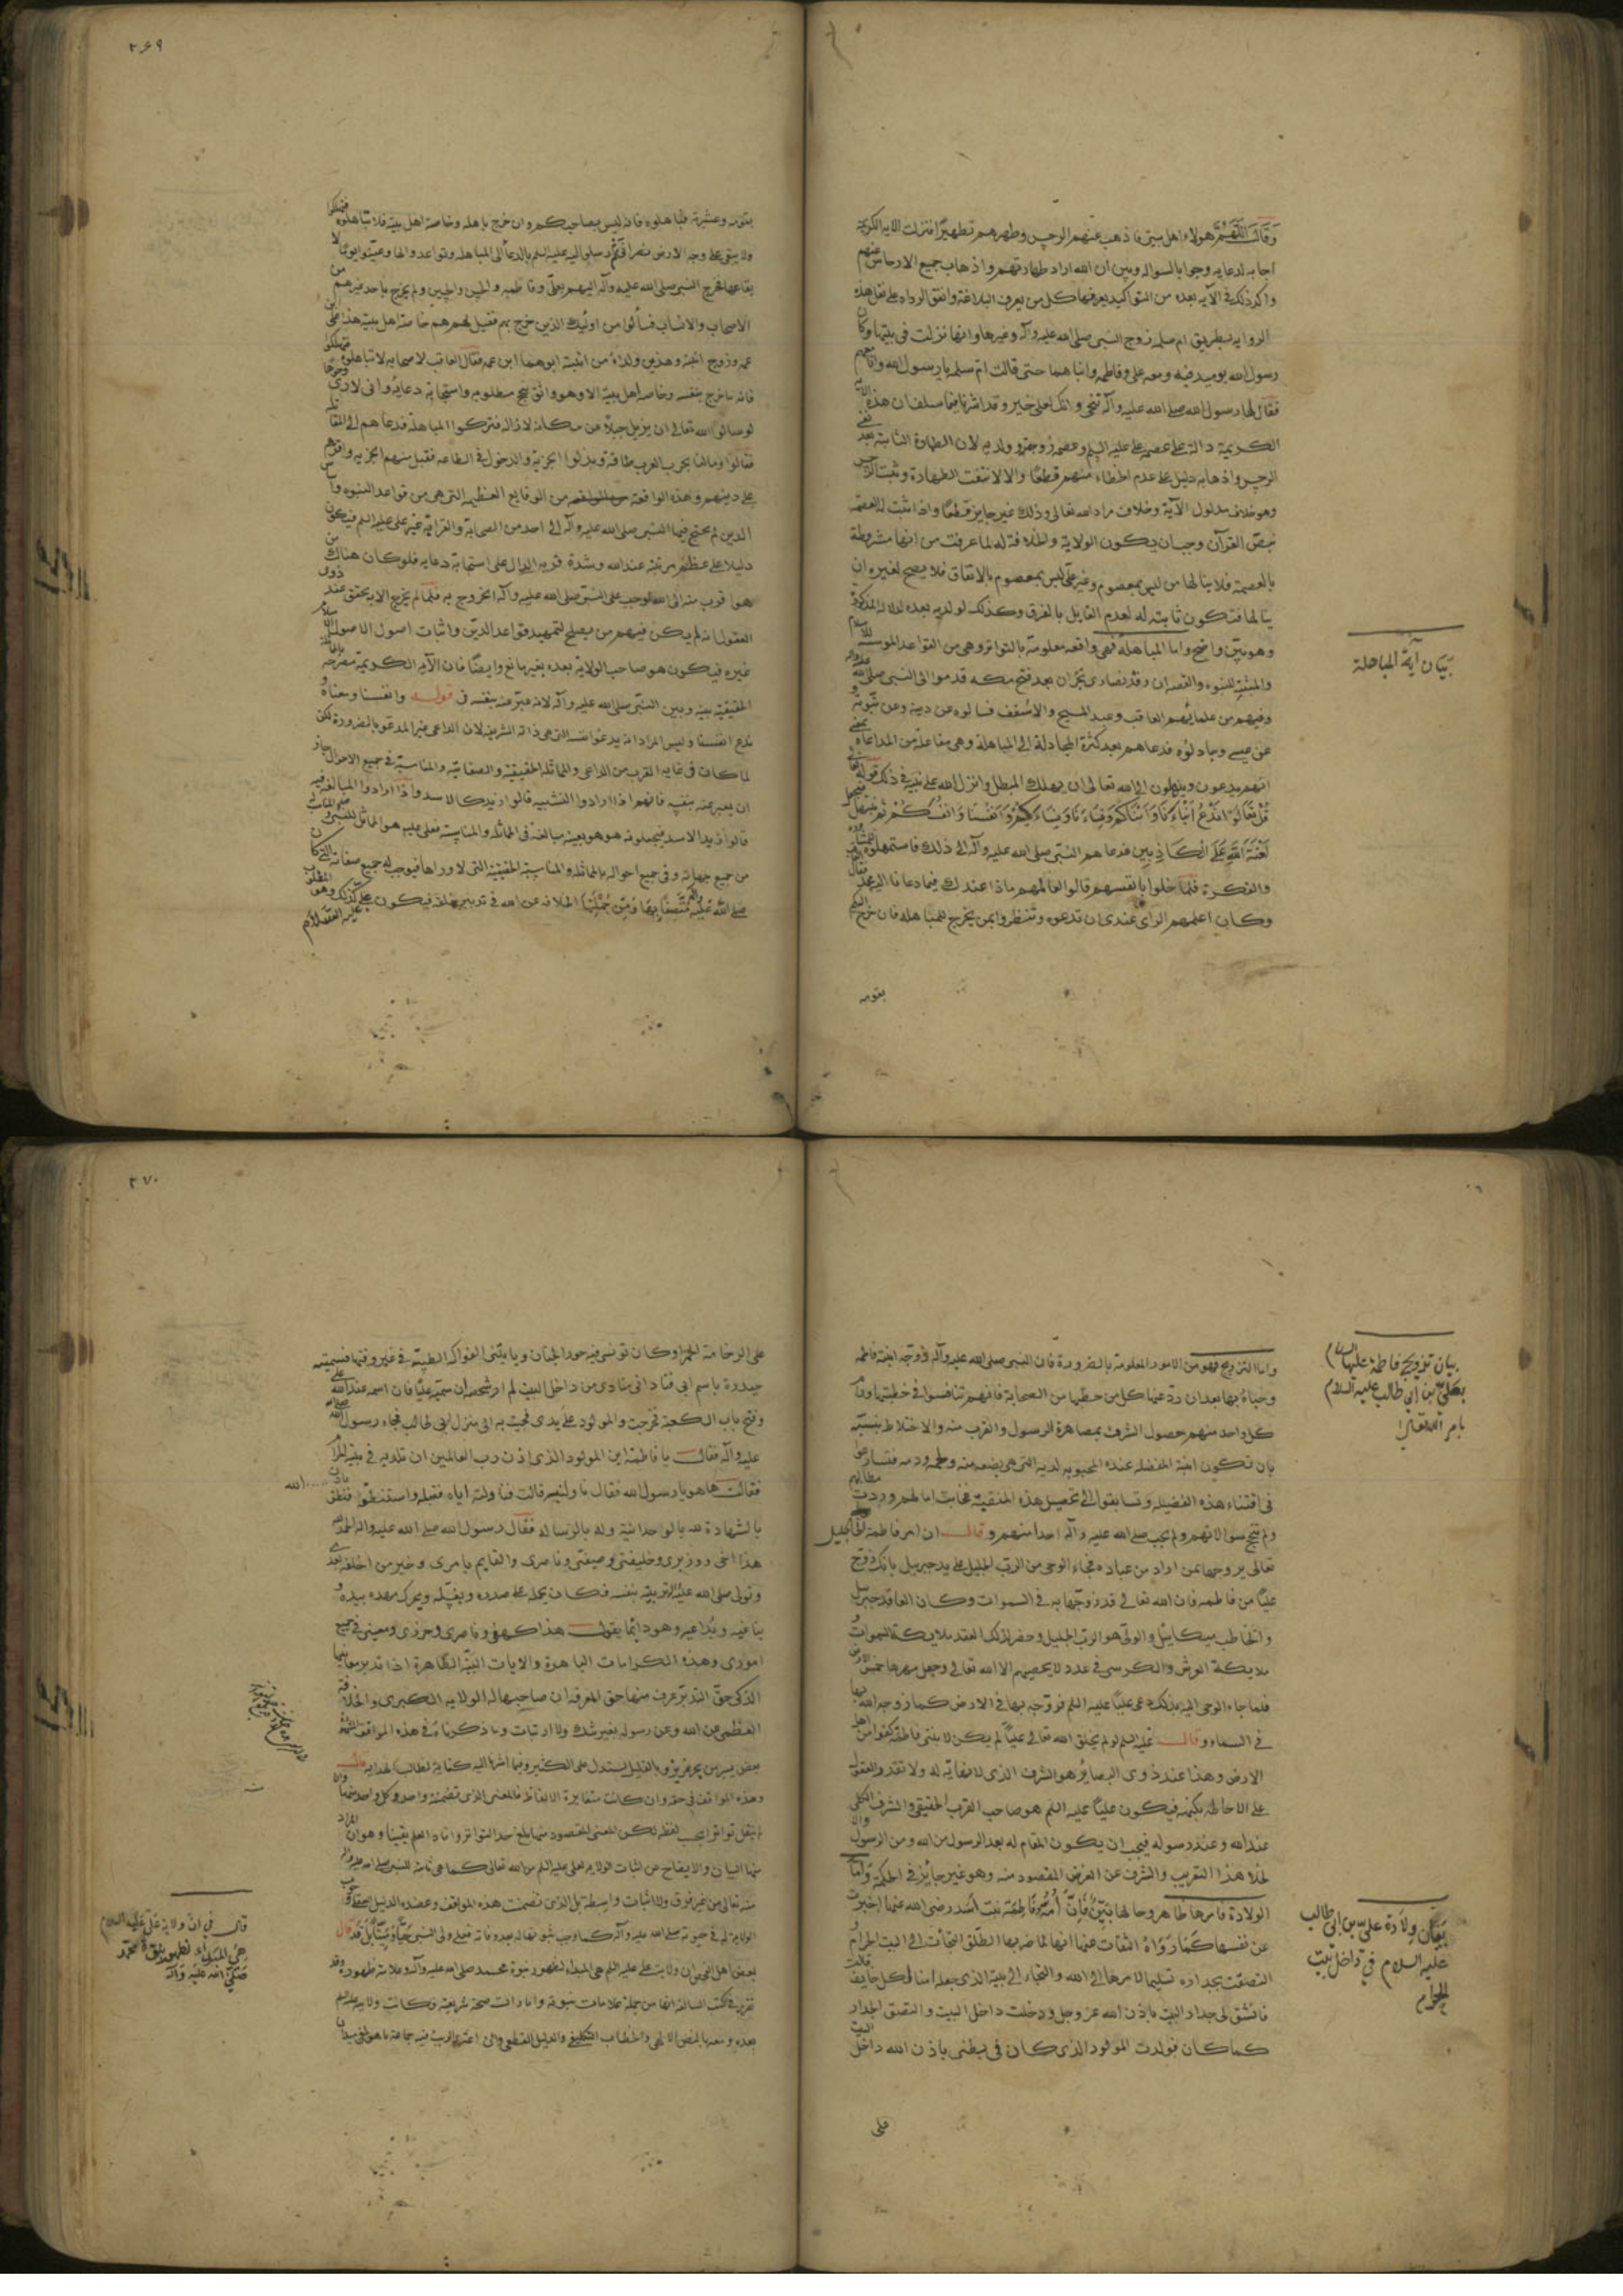 وقال اللهم هولاء اهل بيتي فاذهب عنهم الرجس وطهرهم تطهيرا فنزلت الايه الكريمة
اجابه لدعايه وجوابا لسواله وبين ان الله اراد طهارتهم واذهاب جميع الارجاس عنهم
واكد ذلك في الآيه بعده من التواكيد يعرفها كل من يعرف البلاغة واتفق الرواه على نقل هذه
الروايه بطريق ام سلمه زوج النبي صلى الله عليه وآله وغيرها وانها نزلت في بيتها وكان
رسول الله يوميد فيه ومعه علي وفاطمه وابناهما حتى قالت ام سلمه يا رسول الله وانا معهم
فقال لها رسول الله صلى الله عليه وآله تنحي وانك على خير وقد اشرنا فيما سلف ان هذه الآية
الكريمة دالة على عصمة علي عليه السلم وعصمة زوجته وولديه لان الطهارة الثابتة بعد نفي
الرجس واذهابه دليل على عدم الخطاء منهم قطعا والا لانتفت الطهارة وثبت الرجس
وهو خلاف مدلول الآية وخلاف مراد الله تعالى وذلك غير جايز قطعا واذا ثبت له العصمة
بنص القرآن وجب ان يكون الولاية والخلافة له لما عرفت من انها مشروطة
بالعصمة فلا ينالها من ليس بمعصوم وغير علي ليس بمعصوم بالاتفاق فلا يصح لغيره ان
ينالها فتكون ثابته له لعدم القايل بالفرق وكذلك لولديه بعده لدلاله المذكورة
وهو بين واضح واما المباهلة فهي واقعه معلومة بالتواتر وهي من القواعد الموسسة للاسلام
والمثبتة للنبوه والقصه ان وفد نصارى نجران بعد فتح مكه قدموا الى النبي صلى الله عليه وآله
وفيهم من علمائهم العاقب وعبد المسيح والاسقف فسالوه عن دينه وعن نبوته و
عن عيسى وجادلوه فدعاهم بعد كثرة المجادلة الى المباهلة وهي مفاعلة من المداعاه يعني
انهم يدعون ويبتهلون الى الله تعالى ان يهلك المبطل وانزل الله على نبيه في ذلك قوله تعالى
قل تعالوا ندع ابناءنا وابناءكم ونساءنا ونساءكم وانفسنا وانفسكم ثم نبتهل فنجعل
لعنة الله على الكاذبين فدعاهم النبي صلى الله عليه وآله الى ذلك فاستمهلوه
والفكرة فلما خلوا بانفسهم قالوا لعالمهم ماذا عندك فيما دعانا اليه محمد فقال
وكان اعلمهم الراي عندي ان تدعوه وتنظروا بمن يخرج للمباهلة فان خرج اليكم
بقومه
بيان آية المباهلة
٢٦٩
بقومه وعشيرته فباهلوه فانه ليس بصاحبكم وان خرج باهله وخاصة اهل بيته فلا تباهلوه فتهلكوا
ولا يبقى على وجه الارض نصراني
بقاعها فخرج النبي صلى الله عليه وآله اليهم بعلي وفاطمه والحسن والحسين ولم يخرج باحد غيرهم من
الاصحاب والانساب فسألوا من اولئك الذين خرج بهم فقيل لهم هم خاصة اهل بيته هذا علي ابن
عمه وزوج ابنته وهذين ولداه من ابنته ابوهما ابن عمه فقال العاقب لاصحابه لا تباهلوه فتهلكوا
فانه ما خرج بنفسه وخاصة اهل بيته الا وهو واثق بنجح مطلوبه واستجابة دعايه واني لارى وجوها
لو سالوا الله تعالى ان يزيل جبلا عن مكانه لازاله فتركوا المباهلة فدعاهم الى المقاتله
فقالوا ومالنا بحرب العرب طاقة وبذلوا الجزية والدخول في الطاعه فقبل منهم الجزيه واقرهم
على دينهم وهذه الواقعة من الوقايع العظيمه التي هي من قواعد النبوه واساس
الدين لم يحتج فيها النبي صلى الله عليه وآله الى احد من الصحابة والقرابة غير علي عليه السلم فيكون
دليلا على عظم مرتبته عند الله وشدة قربه الدال على استجابة دعايه فلو كان هناك من
هو اقرب منه الى الله لوجب على النبي صلى الله عليه وآله الخروج به فلما لم يخرج الا به تحقق عند ذوي
العقول انه لم يكن فيهم من يصلح لتمهيد قواعد الدين واثبات اصول الاسلام
غيره فيكون هو صاحب الولاية بعده بغير مانع وايضا فان الآية الكريمة مصرحه
الحقيقية بينه وبين النبي صلى الله عليه وآله لانه عبر عنه بنفسه في قوله وانفسنا ومعناه و
ندع انفسنا وليس المراد انه يدعوا نفسه التي هي ذاته الشريفة لان الداعي غير المدعو بالضرورة لكن
لما كان في غايه القرب من الداعي والمماثله الحقيقية والصفاتيه والمناسبة في جميع الاحوال جاز
ان يعبر عنه بنفسه فانهم اذا ارادوا التشبيه قالوا زيد كالاسد واذا ارادوا المبالغة فيه
قالوا زيد الاسد فيجعلونه هو هو بعينه مبالغة في المماثله والمناسبة فعلي عليه السلم هو المماثل للنبي
من جميع جهاته وفي جميع احواله بالمماثله والمناسبة الحقيقية التي لا وراها فيوجب له جميع صفاته التي كان
صلى الله عليه وآله متصفا بها ومن جملتها الخلافه عن الله في تدبير خلقه فيكون علي كذلك وهو المطلوب
واما التزويج فهو من الامور المعلومة بالضرورة فان النبي صلى الله عليه وآله زوجه ابنته فاطمه
وحباه بها بعد ان رد عنها كل من خطبها من الصحابة فانهم تنافسوا في خطبتها
كل واحد منهم حصول الشرف بمصاهرة الرسول والقرب منه والاختلاط بنسبه
بان تكون ابنته المفضله عنده المحبوبه لديه التي هي بضعه منه ولحمه ودمه فتسارعوا
في اقتناء هذه الفضيله وتسابقوا الى تحصيل هذه المنقبة فخابت امالهم وردت مطالبهم
ولم تنجح سوالاتهم ولم يجب صلى الله عليه وآله احدا منهم وقال ان امر فاطمة الى الجليل
تعالى يزوجها بمن اراد من عباده فجاء الوحي من الرب الجليل على يد جبريل بانك زوج
عليا من فاطمه فان الله تعالى قد زوجها به في السموات وكان العاقد جبريل
والخاطب ميكاييل والولي هو الرب الجليل وحضر لذلك العقد ملايكة السموات و
ملايكة العرش والكرسي في عدد لا يحصيهم الا الله تعالى وجعل مهرها خمس الارض
فلما جاء الوحي اليه بذلك دعى عليا عليه السلم فزوجه بها في الارض كما زوجه الله بها
في السماء وقال عليه السلم لو لم يخلق الله تعالى عليا لم يكن لابنتي فاطمة كفوا من اهل
الارض وهذا عند ذوي البصاير هو الشرف الذي لا نهاية له ولا تقدر العقول
على الاحاطه بكنهه فيكون عليا عليه السلم هو صاحب القرب الحقيقي والشرف الكلي
عند الله وعند رسوله فيجب ان يكون المقام له بعد الرسول من الله ومن الرسول والا
لخلا هذا التقريب والشرف عن الغرض المقصود منه وهو غير جايز في الحكمة واما
الولادة فامرها ظاهر وحالها بين فان امه فاطمة بنت اسد رضي الله عنها اخبرت
عن نفسها كما رواه الثقات عنها انها لما ضربها الطلق التجأت الى البيت الحرام و
التصقت بجداره تسليما لامرها الى الله والتجاء الى بيته الذي جعله امنا لكل خايف قالت
فانشق لي جدار البيت باذن الله عز وجل ودخلت داخل البيت والتصق الجدار
كما كان فولدت المولود الذي كان في بطني باذن الله داخل البيت
على
بيان تزويج فاطمة عليها السلام
بعلي بن ابي طالب عليه السلام
بامر الله تعالى
بيان ولادة علي بن ابي طالب
عليه السلام في داخل بيت
الحرام
٢٧٠
على الرخامة الحمراء وكان تونسي فيه حور الجنان وياتيني الفواكه الطيبة في غير وقتها فسميته
حيدرة باسم ابي فناداني منادي من داخل البيت سميه عليا فان اسمه عند الله علي
وفتح باب الكعبة فخرجت والمولود على يدي فجيت به الى منزل ابي طالب فجاء رسول الله صلى الله
عليه وآله فقال يا فاطمة اين المولود الذي اذن رب العالمين ان تلديه في بيته الحرام
فقالت ها هو يا رسول الله فقال ناولنيه قالت فناولته اياه فقبله واستنطقه فنطق
بالشهادة لله بالوحدانية وله بالرسالة فقال رسول الله صلى الله عليه وآله الحمد لله
هذا اخي ووزيري وخليفتي وصيفتي وناصري والقايم بامري وخير من اخلفه بعدي
وتولى صلى الله عليه وآله تربيته بنفسه فكان يحمله على صدره ويقبله ويحرك مهده بيده و
يناغيه ويداعبه وهو دايما يقول هذا كهفي وناصري وحرزي ومعيني في جميع
اموري وهذه الكرامات الباهرة والايات البينة الظاهرة اذا تدبر معانيها
الذكي حق التدبر عرف منها حق المعرفة ان صاحبها له الولايه الكبرى والخلافة
العظمى عن الله وعن رسوله بغير شك ولا ارتياب وما ذكرناه في هذه المواقف
بعض يسير من بحر غزير وبالقليل يستدل على الكثير وفيما اشرنا اليه كفاية لطالب الهدايه
وهذه المواقف في حقه وان كانت متغايرة الالفاظ فالمعنى الذي تضمنته واحد وكل واحد منها وان
لم ينقل تواترا بحسب لفظه لكن المعنى المقصود منها بلغ حد التواتر وافاد العلم يقينا وهو ان المراد
منها البيان والايضاح عن اثبات الولاية لعلي عليه السلم من الله تعالى كما هي ثابتة للنبي صلى الله عليه وآله
منه تعالى من غير فرق ولا اثبات واسطة بل الذي تضمنت هذه المواقف وعضده الدليل
الولاية له في حيوته صلى الله عليه وآله كما وجب ثبوتها له بعد وفاته فعلي ولي النبي حيا وميتا بل قد قال
بعض اهل التحقيق ان ولاية علي عليه السلم هي المبداء لظهور نبوة محمد صلى الله عليه وآله وعلامة ظهوره وقد
تقرر في الكتب السالفة انها من جملة علامات نبوته وامارات صحة شريعته وكانت ولايته عليه السلم
بعده ومعه بالنص الالهي والخطاب التكليفي والدليل القطعي
قال في ان ولاية علي عليه السلام
هي المبداء لظهور نبوة محمد
صلى الله عليه وآله